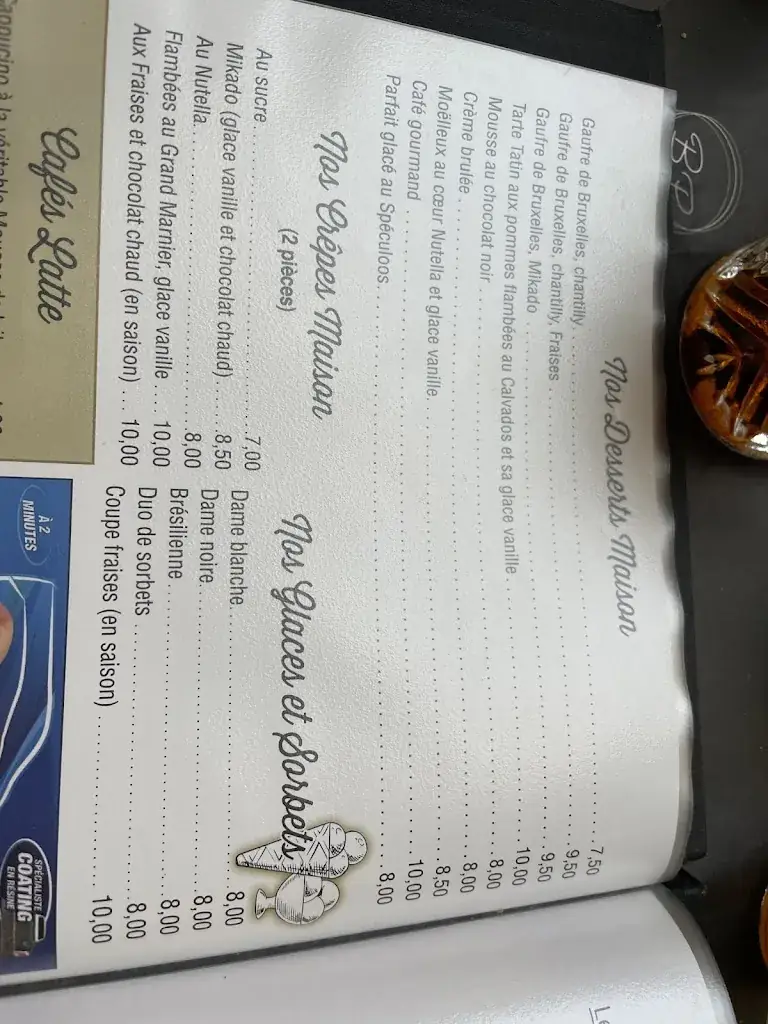 Nos Desserts Maison
Gaufre de Bruxelles, chantilly 7,50
Gaufre de Bruxelles, chantilly, Fraises 9,50
Gaufre de Bruxelles, Mikado 9,50
Tarte Tatin aux pommes flambées au Calvados et sa glace vanille 10,00
Mousse au chocolat noir 8,00
Crème brulée 8,00
Moëlleux au cœur Nutella et glace vanille 8,50
Café gourmand 10,00
Parfait glacé au Spéculoos 8,00
Nos Crêpes Maison
(2 pièces)
Au sucre 7,00
Mikado (glace vanille et chocolat chaud) 8,50
Au Nutella 8,00
Flambées au Grand Marnier, glace vanille 10,00
Aux Fraises et chocolat chaud (en saison) 10,00
Nos Glaces et Sorbets
Dame blanche 8,00
Dame noire 8,00
Brésilienne 8,00
Duo de sorbets 8,00
Coupe fraises (en saison) 10,00
Cafés Latte
À 2
MINUTES
SPÉCIALISTE
COATING
EN RÉSINE
BP